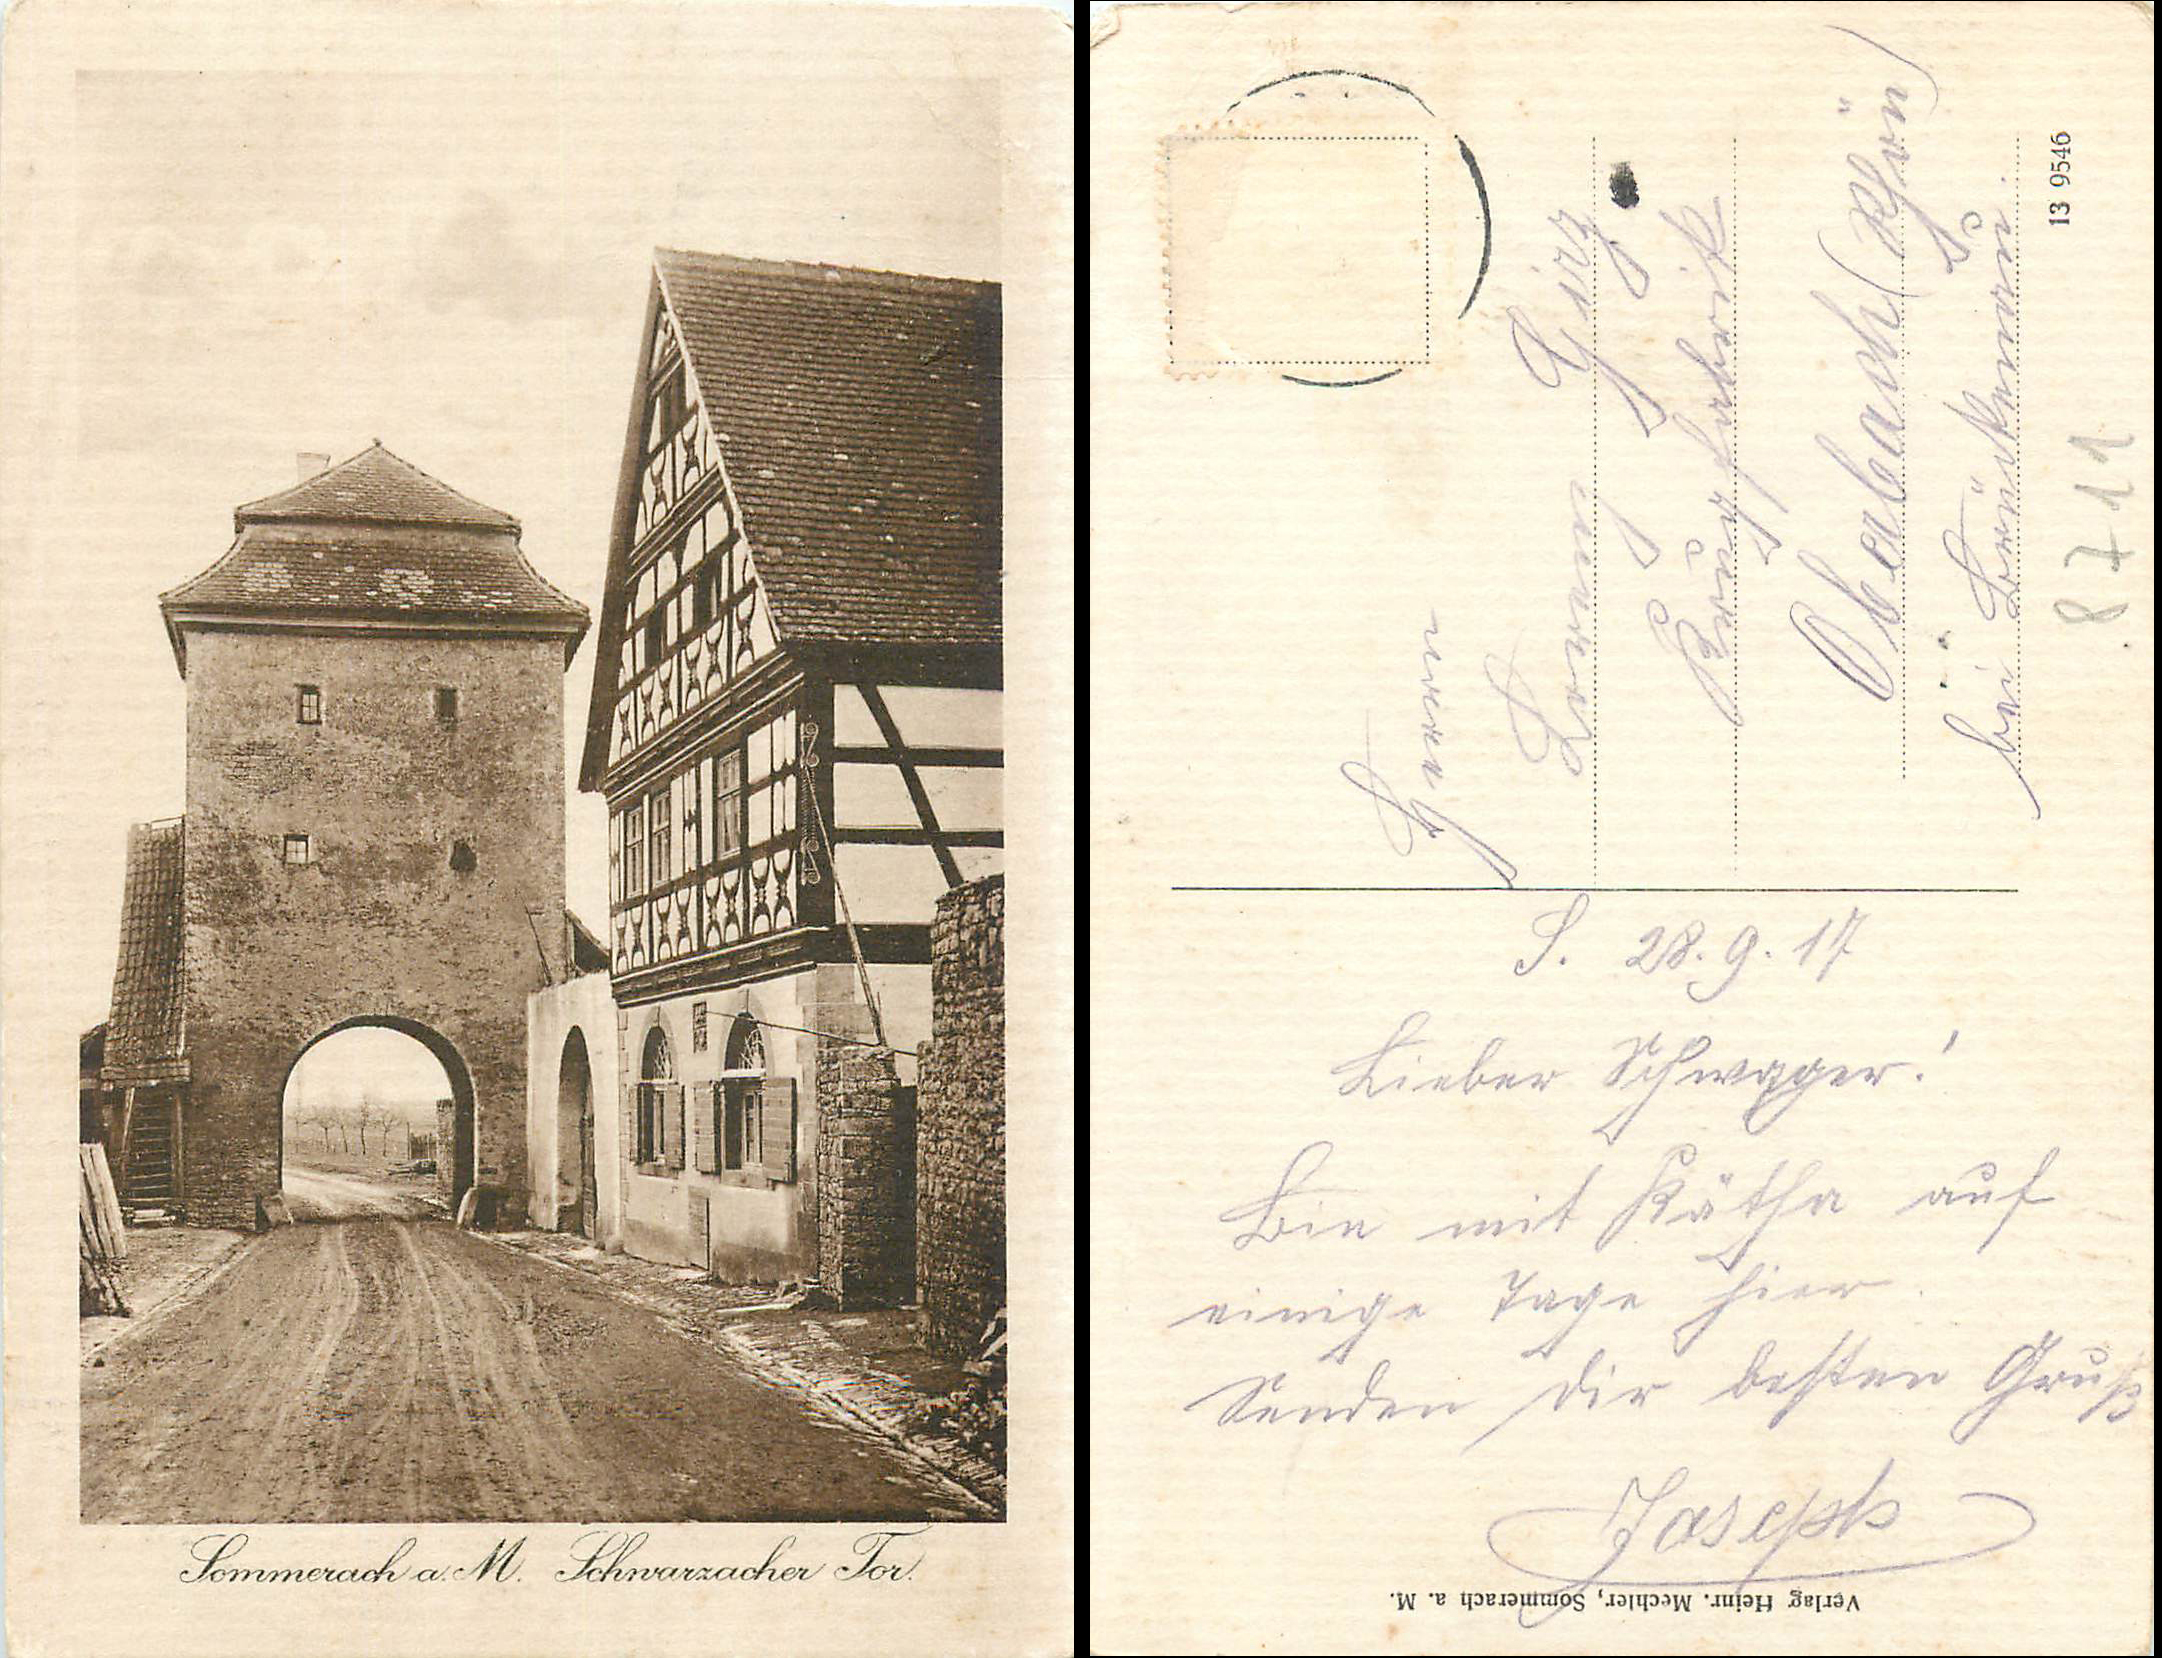 Sommerach a. M. Schwarzacher Tor.
Herrn
Lorenz Görz
Kunstfabrik
Oberbach (Rhön)
bei Brückenau.
13 9546
8711
S. 28.9.17
Lieber Schwager!
Bin mit Kätha auf
einige Tage hier.
Senden dir besten Gruß
Joseph
Verlag Heinr. Mechler, Sommerach a. M.